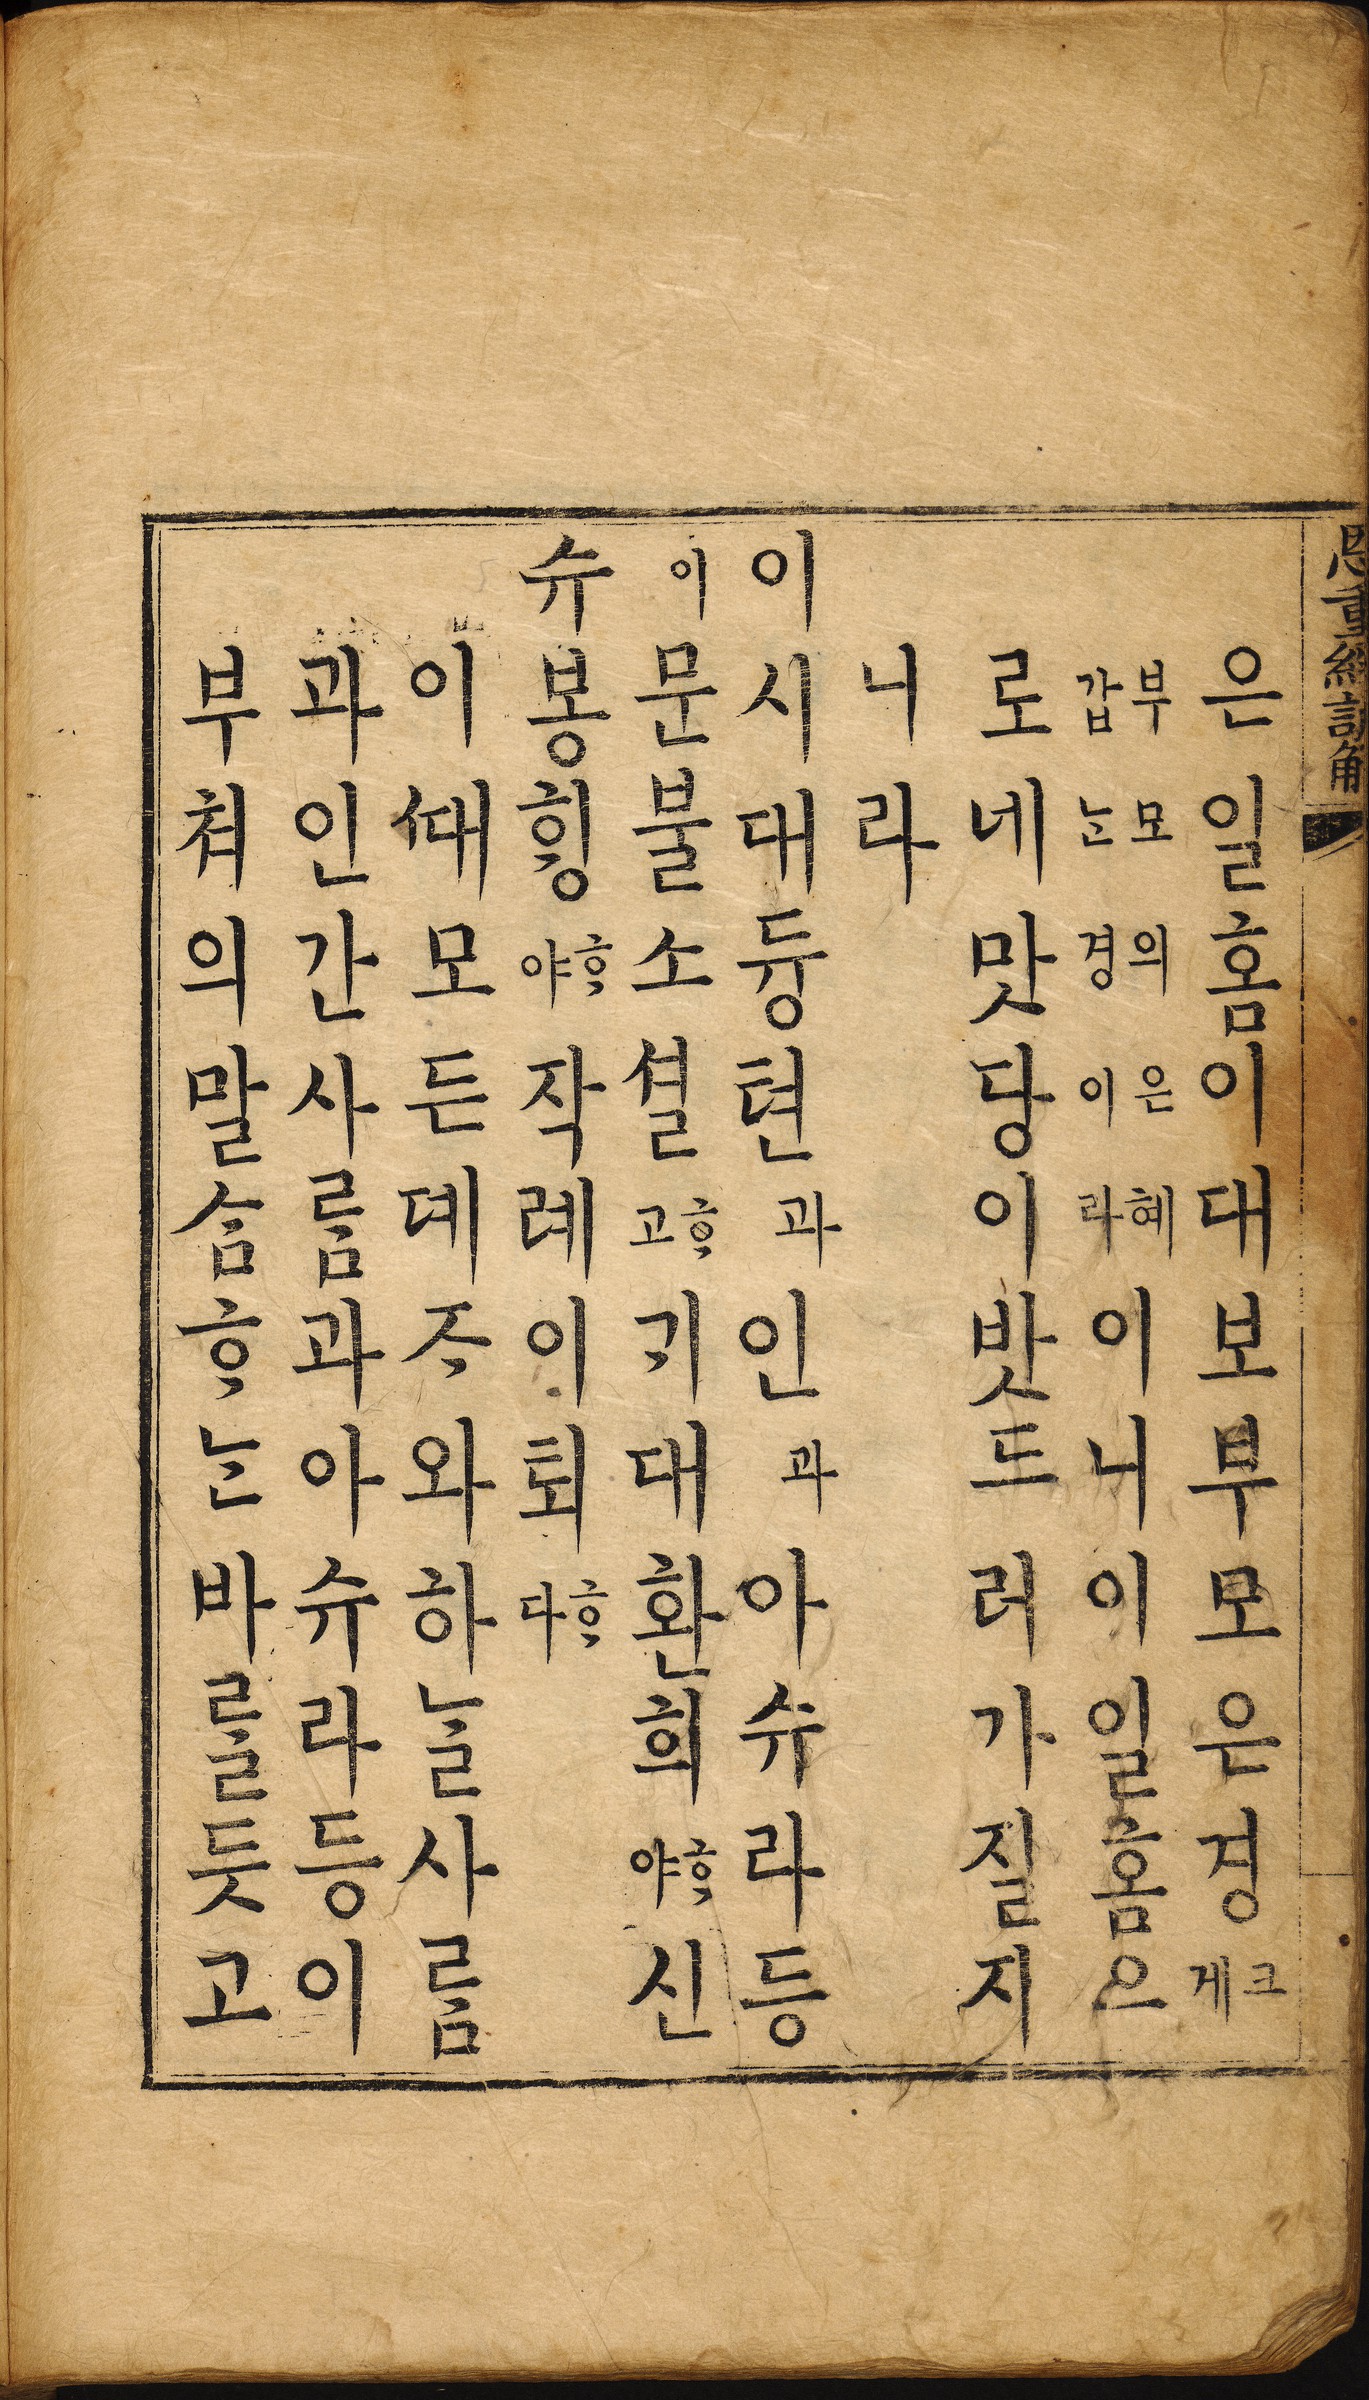 恩重經諺解
은일홈이대보부모은경크게
부모의은혜갑ᄂᆞᆫ경이라이니이일홈으
로네맛당이밧드러가질지
니라
이시대듕텬과인과아슈라등
이문불소셜ᄒᆞ고ᄀᆡ대환희ᄒᆞ야신
슈봉ᄒᆡᆼᄒᆞ야작례이퇴ᄒᆞ다
이ᄯᅢ모든뎨ᄌᆞ와하ᄂᆞᆯ사ᄅᆞᆷ
과인간사ᄅᆞᆷ과아슈라등이
부쳐의말ᄉᆞᆷᄒᆞᄂᆞᆫ바ᄅᆞᆯ듯고